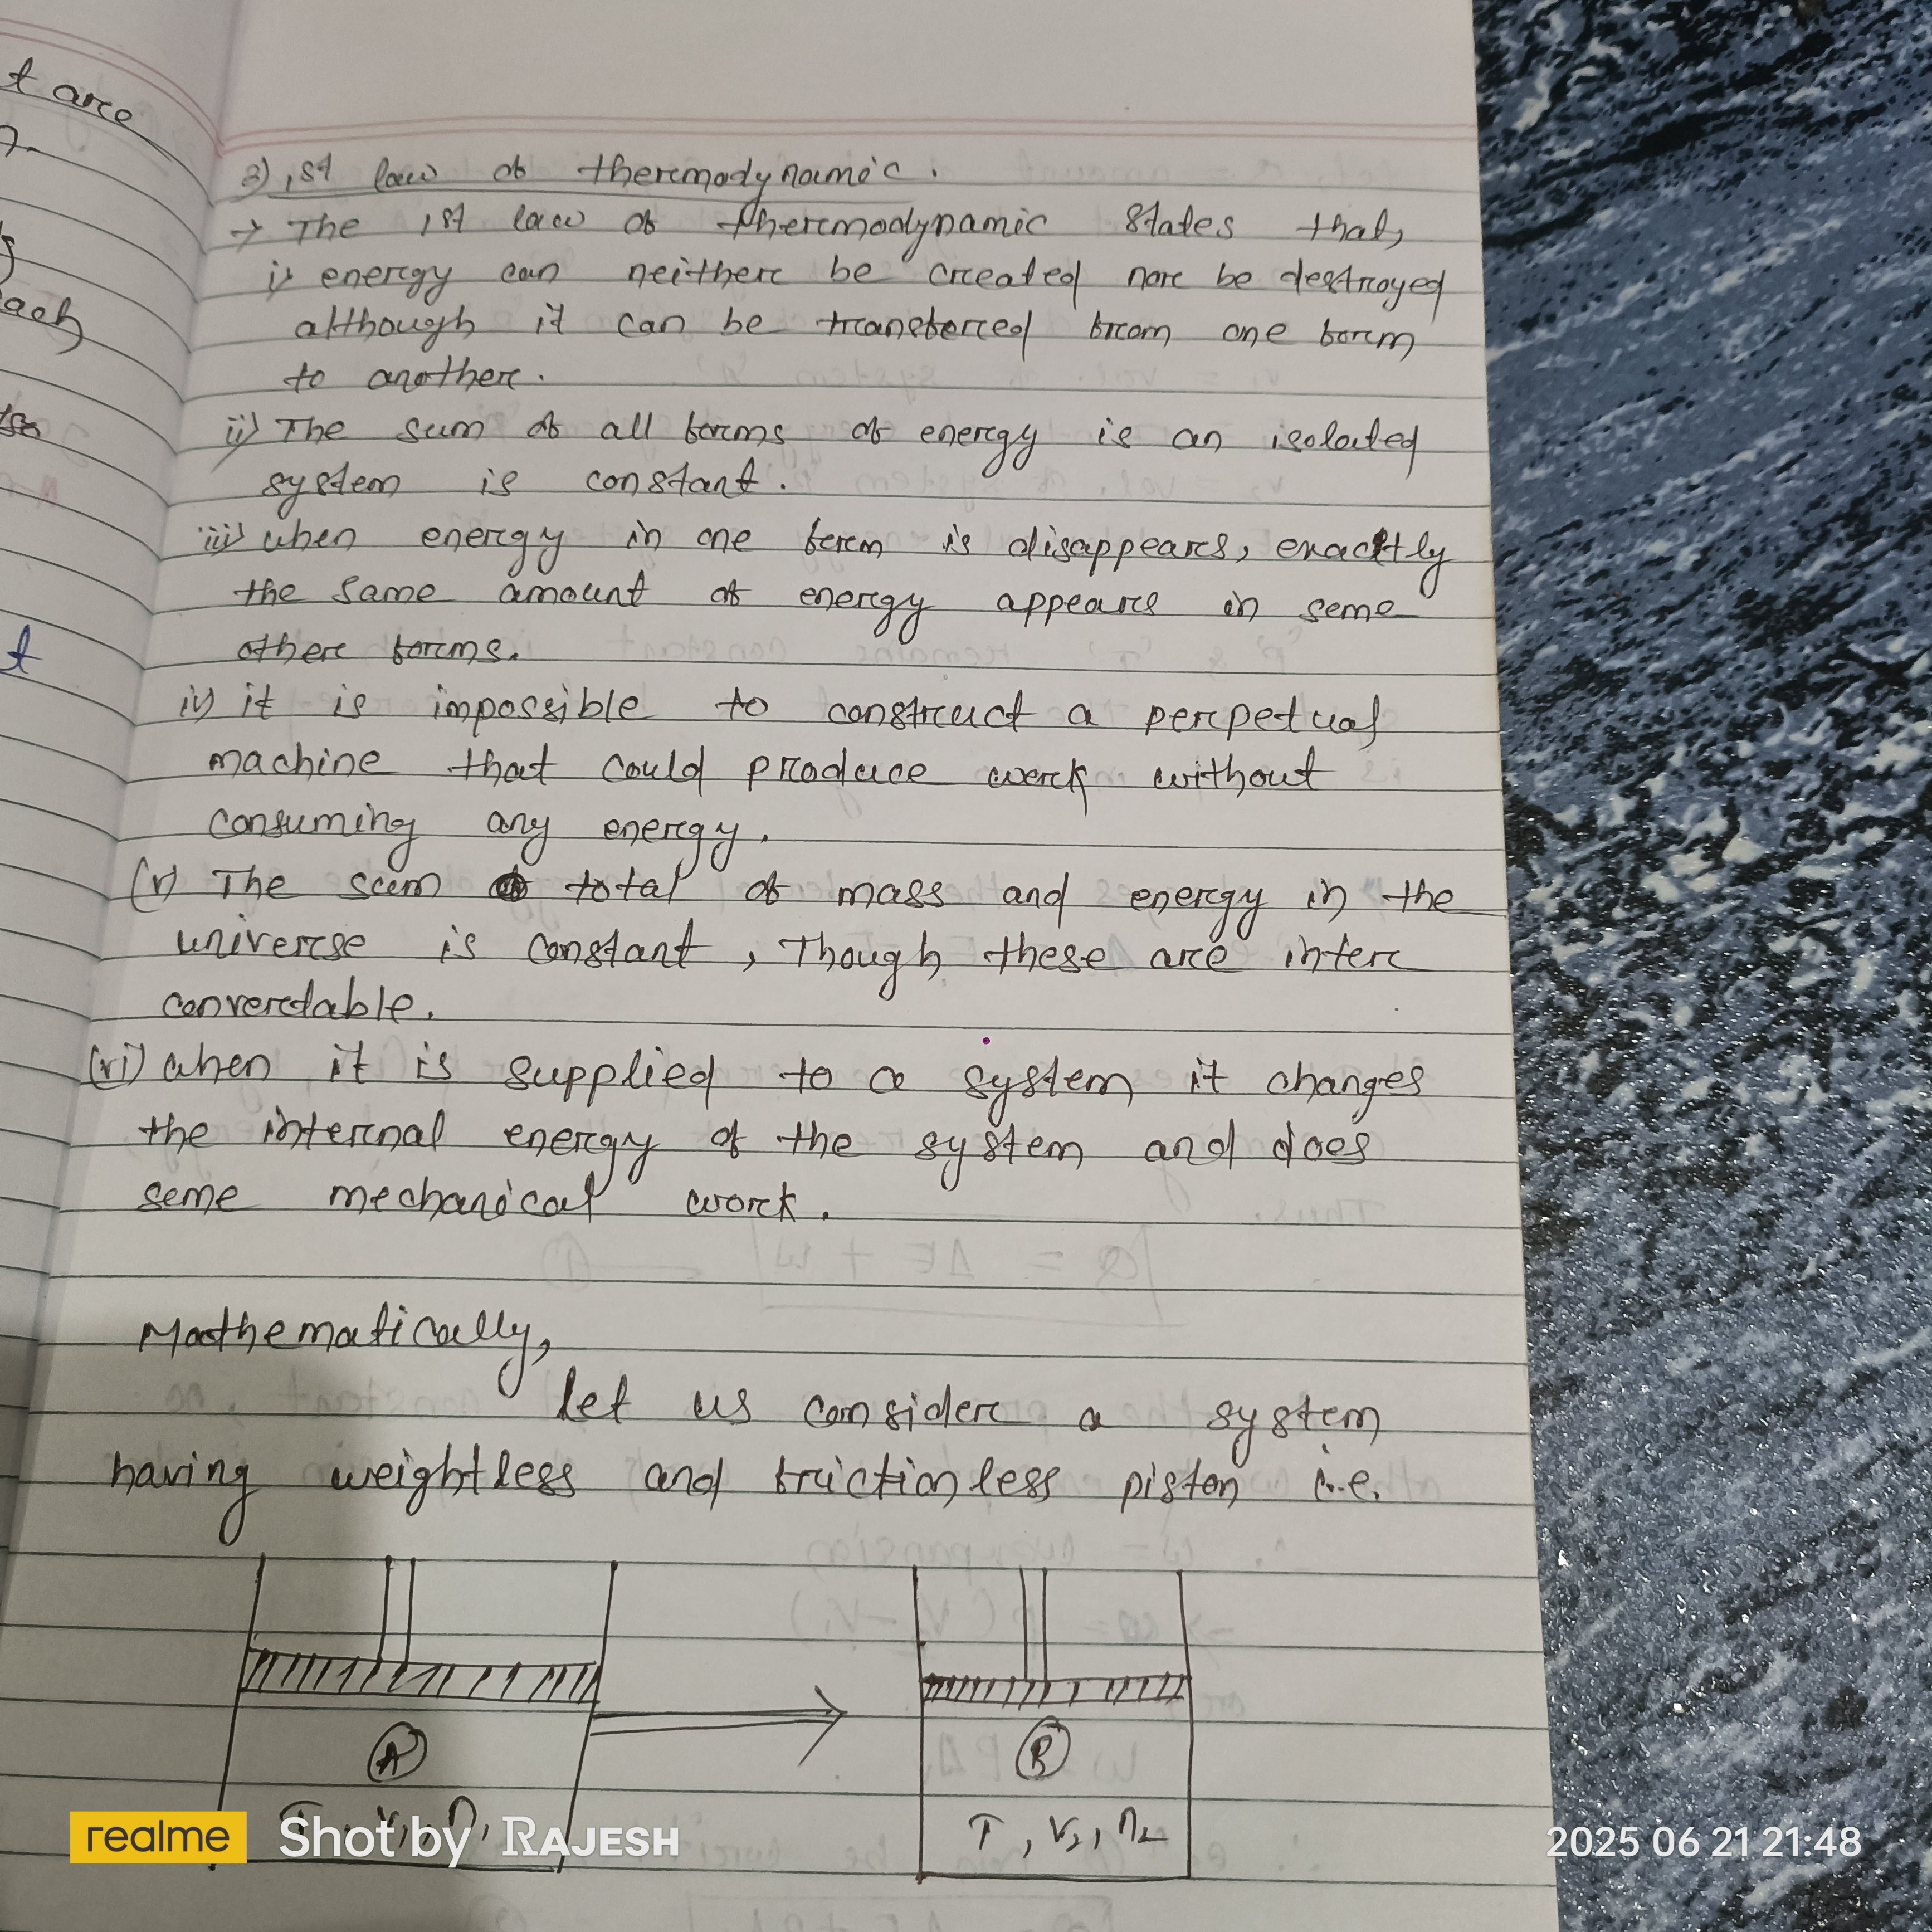 t are
ach
t
3) 1st law of thermodynamic.
→ The 1st law of thermodynamic states that,
i) energy can neither be created nor be destroyed
although it can be transferred from one form
to another.
ii) The sum of all forms of energy is an isolated
system is constant.
iii) when energy in one form is disappears, exactly
the same amount of energy appears in some
other forms.
iv) it is impossible to construct a perpetual
machine that could produce work without
consuming any energy.
(v) The sum total of mass and energy in the
universe is constant, Though these are inter
convertable.
(vi) when it is supplied to a system it changes
the internal energy of the system and does
some mechanical work.
Mathematically,
let us consider a system
having weightless and frictionless piston i.e.
A
B
T, V₂, n₂
realme Shot by RAJESH
2025 06 21 21:48